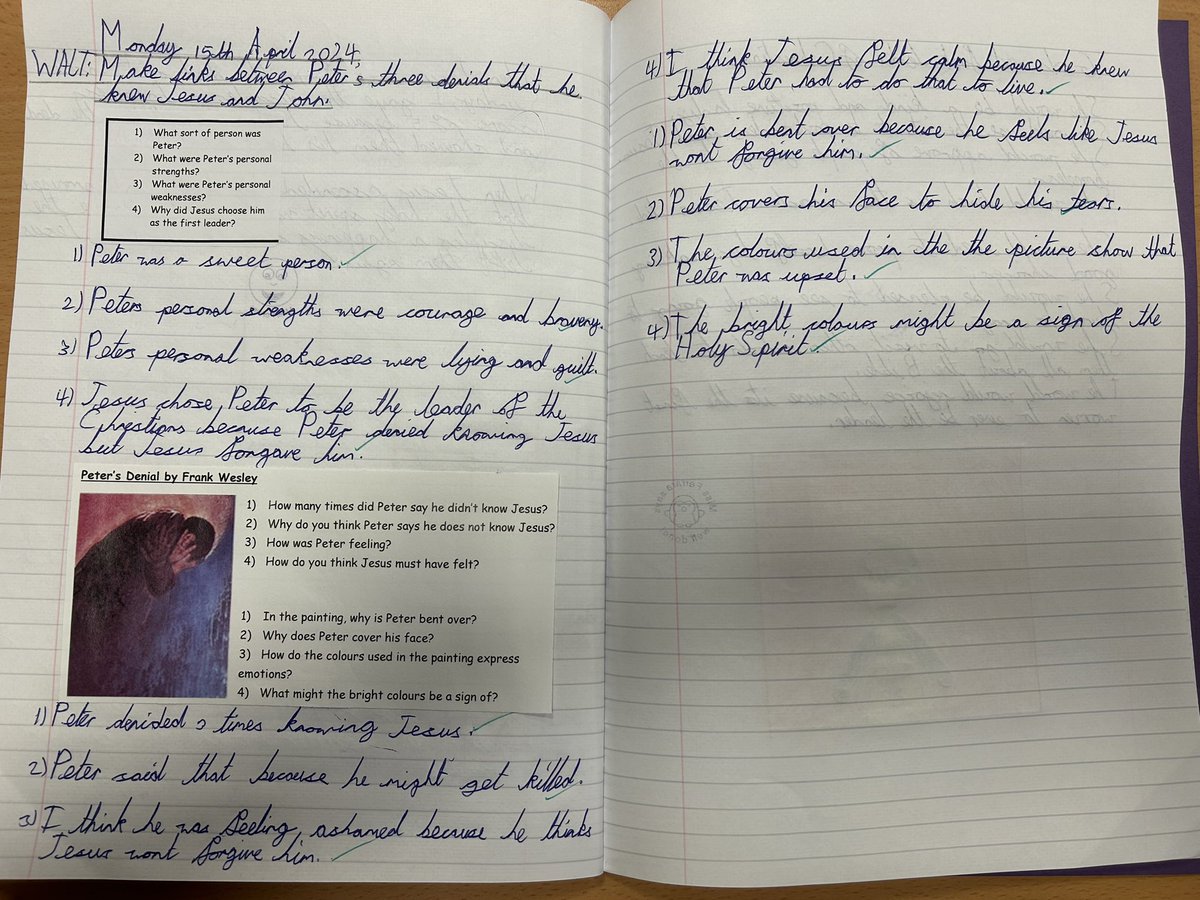 Monday 15th April 2024
WALT: Make links between Peter's three denials that he
knew Jesus and John.
1) What sort of person was
Peter?
2) What were Peter's personal
strengths?
3) What were Peter's personal
weaknesses?
4) Why did Jesus choose him
as the first leader?
1) Peter was a sweet person.
2) Peters personal strengths were courage and bravery.
3) Peters personal weaknesses were lying and guilt.
4) Jesus chose Peter to be the leader of the
Christians because Peter denied knowing Jesus
but Jesus forgave him.
Peter's Denial by Frank Wesley
1) How many times did Peter say he didn't know Jesus?
2) Why do you think Peter says he does not know Jesus?
3) How was Peter feeling?
4) How do you think Jesus must have felt?
1) In the painting, why is Peter bent over?
2) Why does Peter cover his face?
3) How do the colours used in the painting express
emotions?
4) What might the bright colours be a sign of?
1) Peter denided 3 times knowing Jesus.
2) Peter said that because he might get killed.
3) I think he was feeling ashamed because he thinks
Jesus wont forgive him.
4) I think Jesus felt calm because he knew
that Peter had to do that to live.
1) Peter is bent over because he feels like Jesus
wont forgive him.
2) Peter covers his face to hide his tears.
3) The colours used in the the picture show that
Peter was upset.
4) The bright colours might be a sign of the
Holy Spirit.